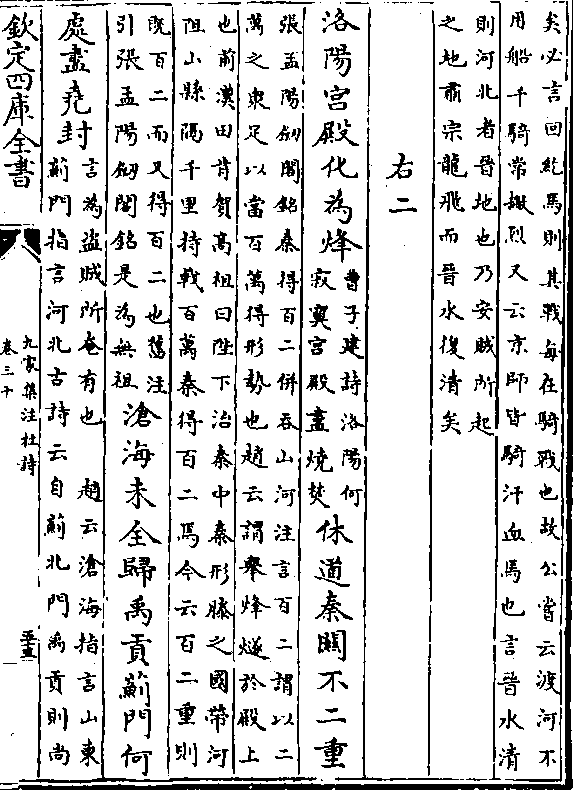 矣必言回紇馬則其戰每在騎戰也故公嘗云渡河不
用船千騎常撇烈又云京師皆騎汗血馬也言晉水清
則河北者晉地也乃安賊所起
之地肅宗龍飛而晉水復清矣
右二
洛陽宫殿化為烽
曹子建詩洛陽何
寂寞宫殿盡燒焚
休道秦關不二重
張孟陽劒閣銘秦得百二併吞山河注言百二謂以二
萬之衆足以當百萬得形勢也趙云謂舉烽燧於殿上
也前漢田肯賀高祖曰陛下治秦中秦形勝之國帶河
阻山縣隔千里持戟百萬秦得百二焉今云百二重則
既百二而又得百二也舊注
引張孟陽劒閣銘是為無祖
滄海未全歸禹貢薊門何
處盡堯封
言為盜賊所奄有也 趙云滄海指言山東
薊門指言河北古詩云自薊北門禹貢則尚
欽定四庫全書
九家集注杜詩
卷三十